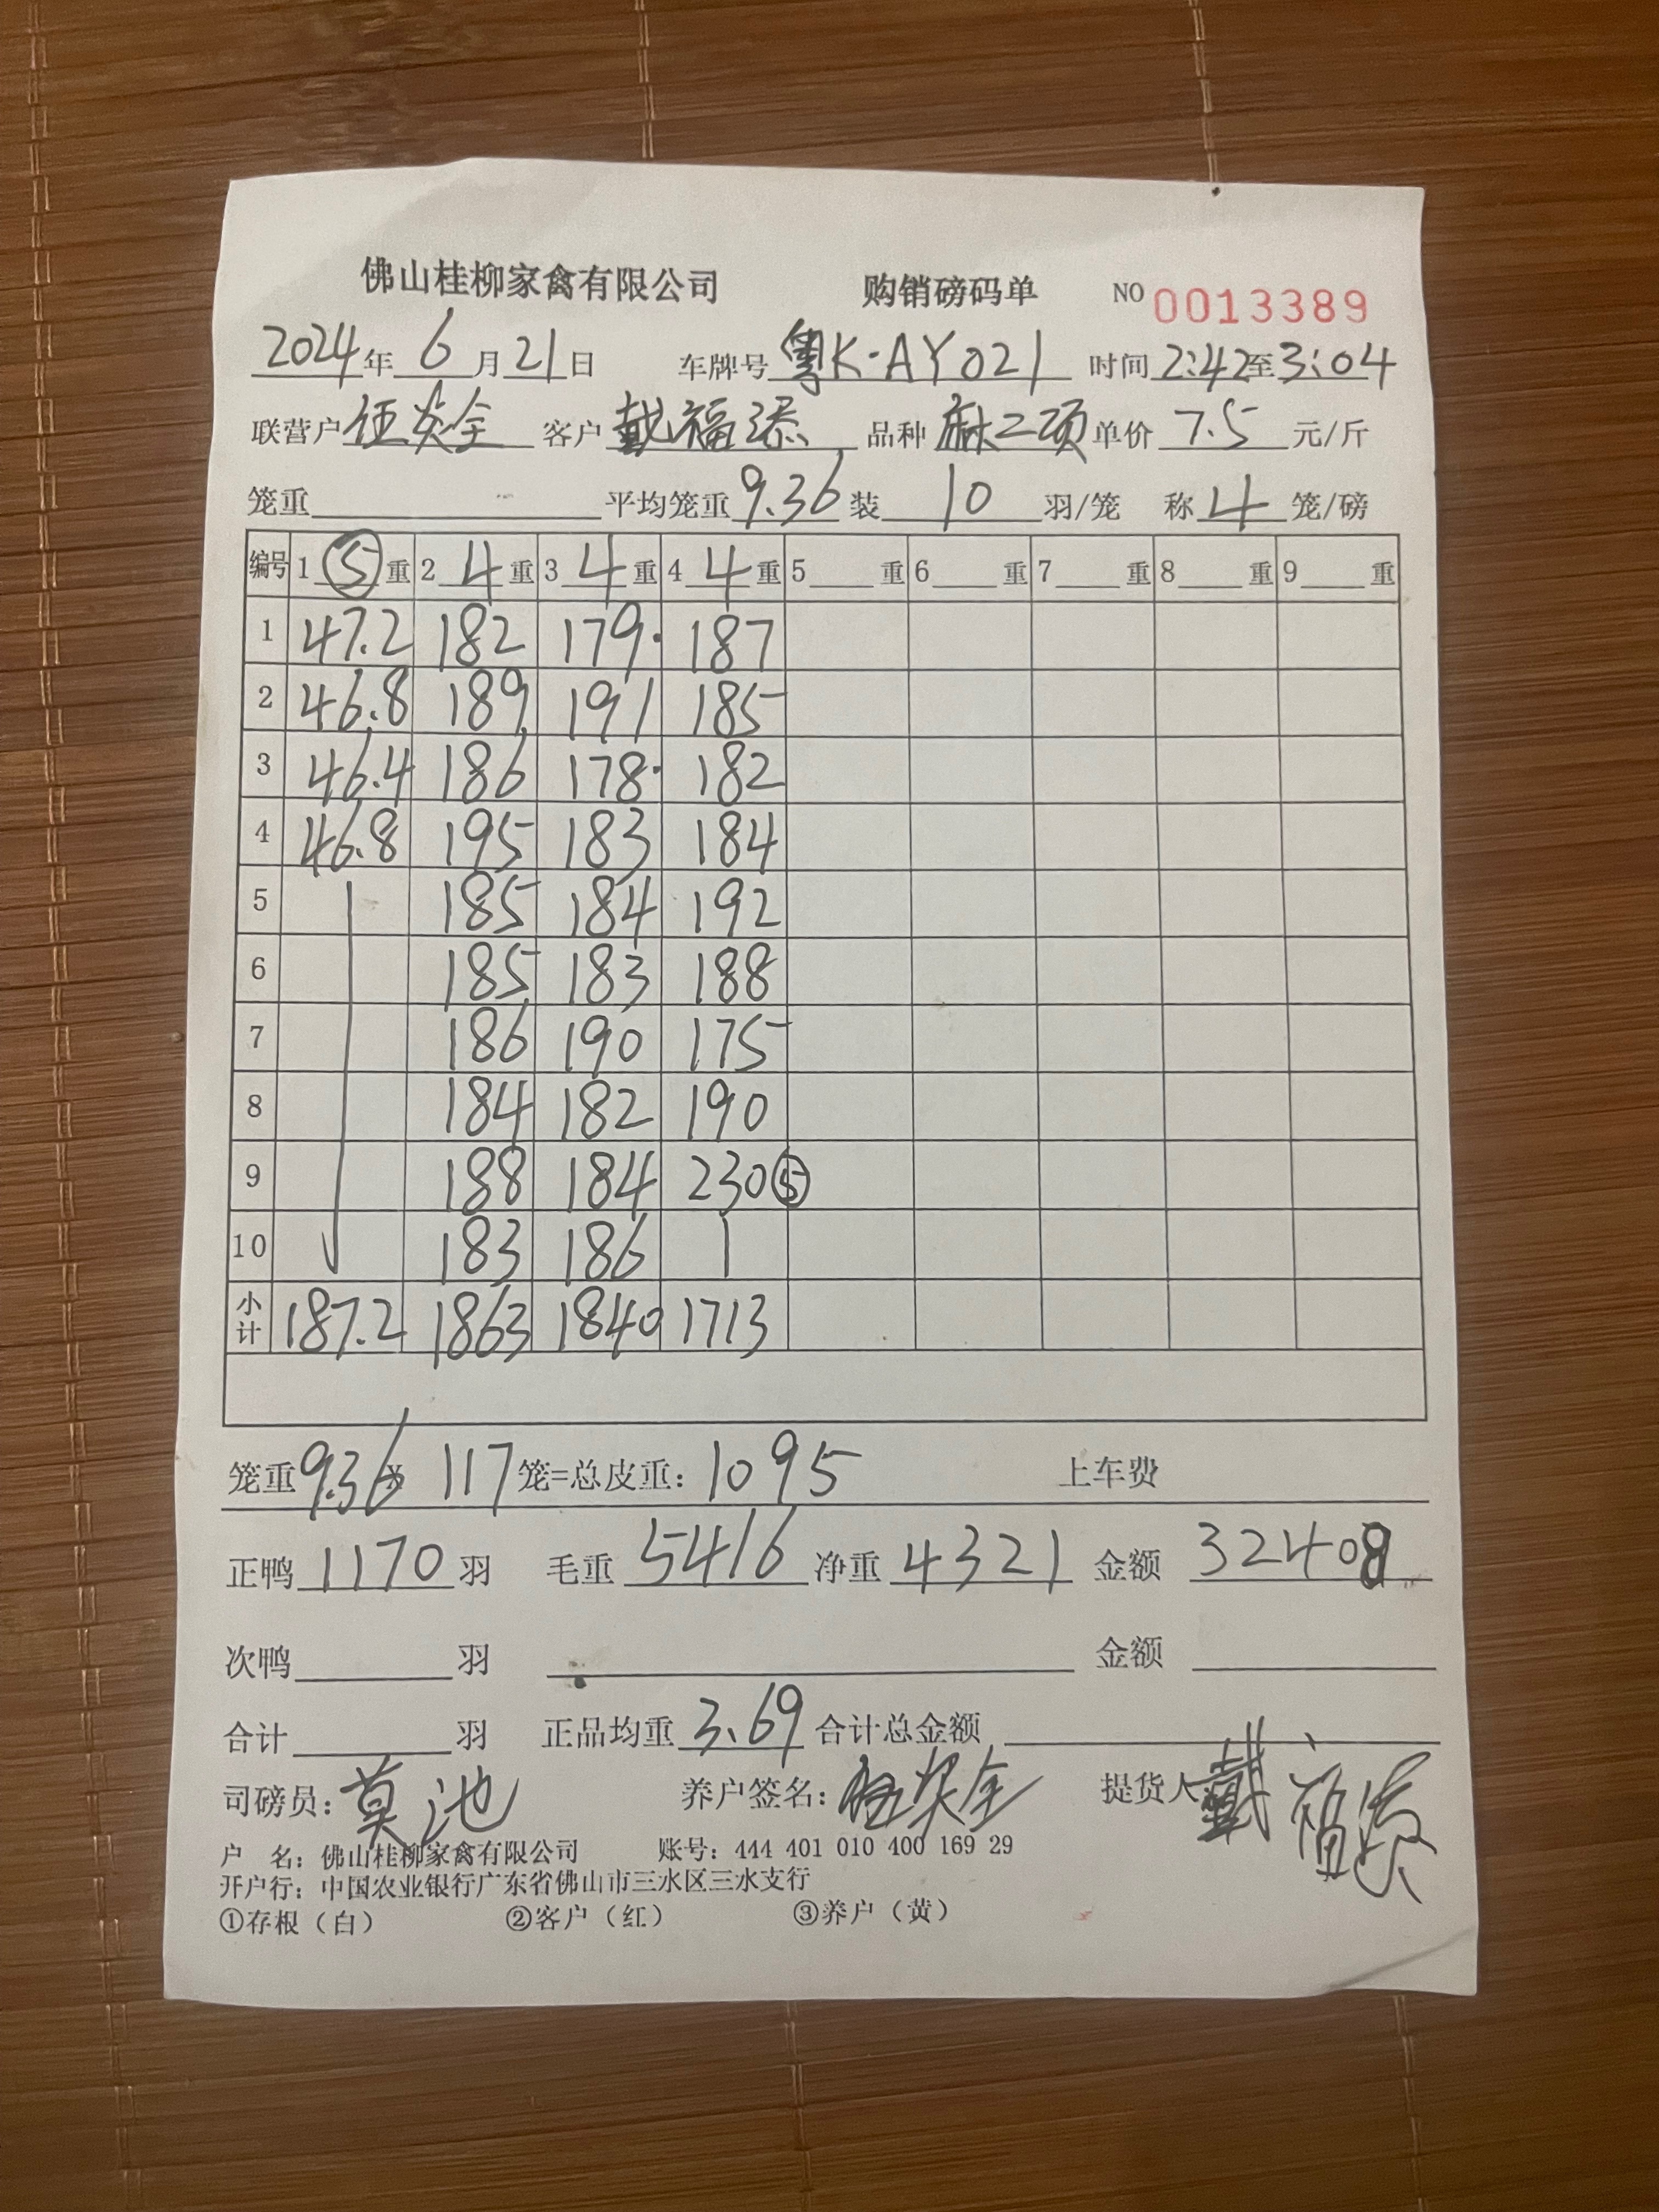 佛山桂柳家禽有限公司 购销磅码单 NO 0013389
2024年 6月21日 车牌号 粤K·AY021 时间 2:42至3:04
联营户 伍炎全 客户 戴福添 品种 麻二项 单价 7.5 元/斤
笼重 平均笼重 9.36 装 10 羽/笼 称 4 笼/磅
编号 1 ⑤ 重 2 4 重 3 4 重 4 4 重 5 重 6 重 7 重 8 重 9 重
1 47.2 182 179· 187
2 46.8 189 191 185
3 46.4 186 178· 182
4 46.8 195 183 184
5 185 184 192
6 185 183 188
7 186 190 175
8 184 182 190
9 188 184 230⑤
10 183 186
小计 187.2 1863 1840 1713
笼重 9.36 × 117 笼=总皮重: 1095 上车费
正鸭 1170 羽 毛重 5416 净重 4321 金额 32408
次鸭 羽 金额
合计 羽 正品均重 3.69 合计总金额
司磅员: 莫池 养户签名: 伍炎全 提货人 戴福添
户 名: 佛山桂柳家禽有限公司 账号: 444 401 010 400 169 29
开户行: 中国农业银行广东省佛山市三水区三水支行
①存根（白） ②客户（红） ③养户（黄）